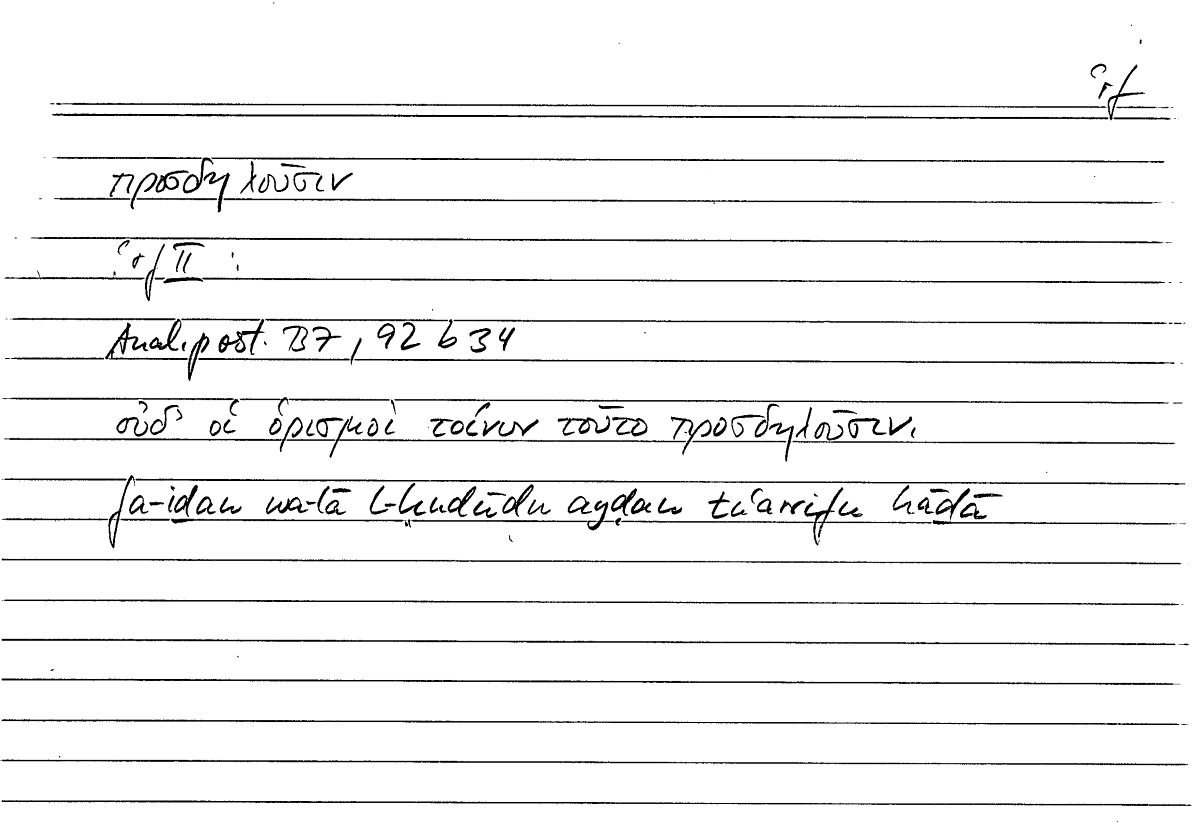 ʿrf
προσδηλοῦσιν
ʿrf II :
Anal. post. B7, 92 b 34
οὐδ' οἱ ὁρισμοὶ τοίνυν τοῦτο προσδηλοῦσιν.
fa-iḏan wa-lā l-ḥudūdu ayḍan tuʿarrifu hāḏā